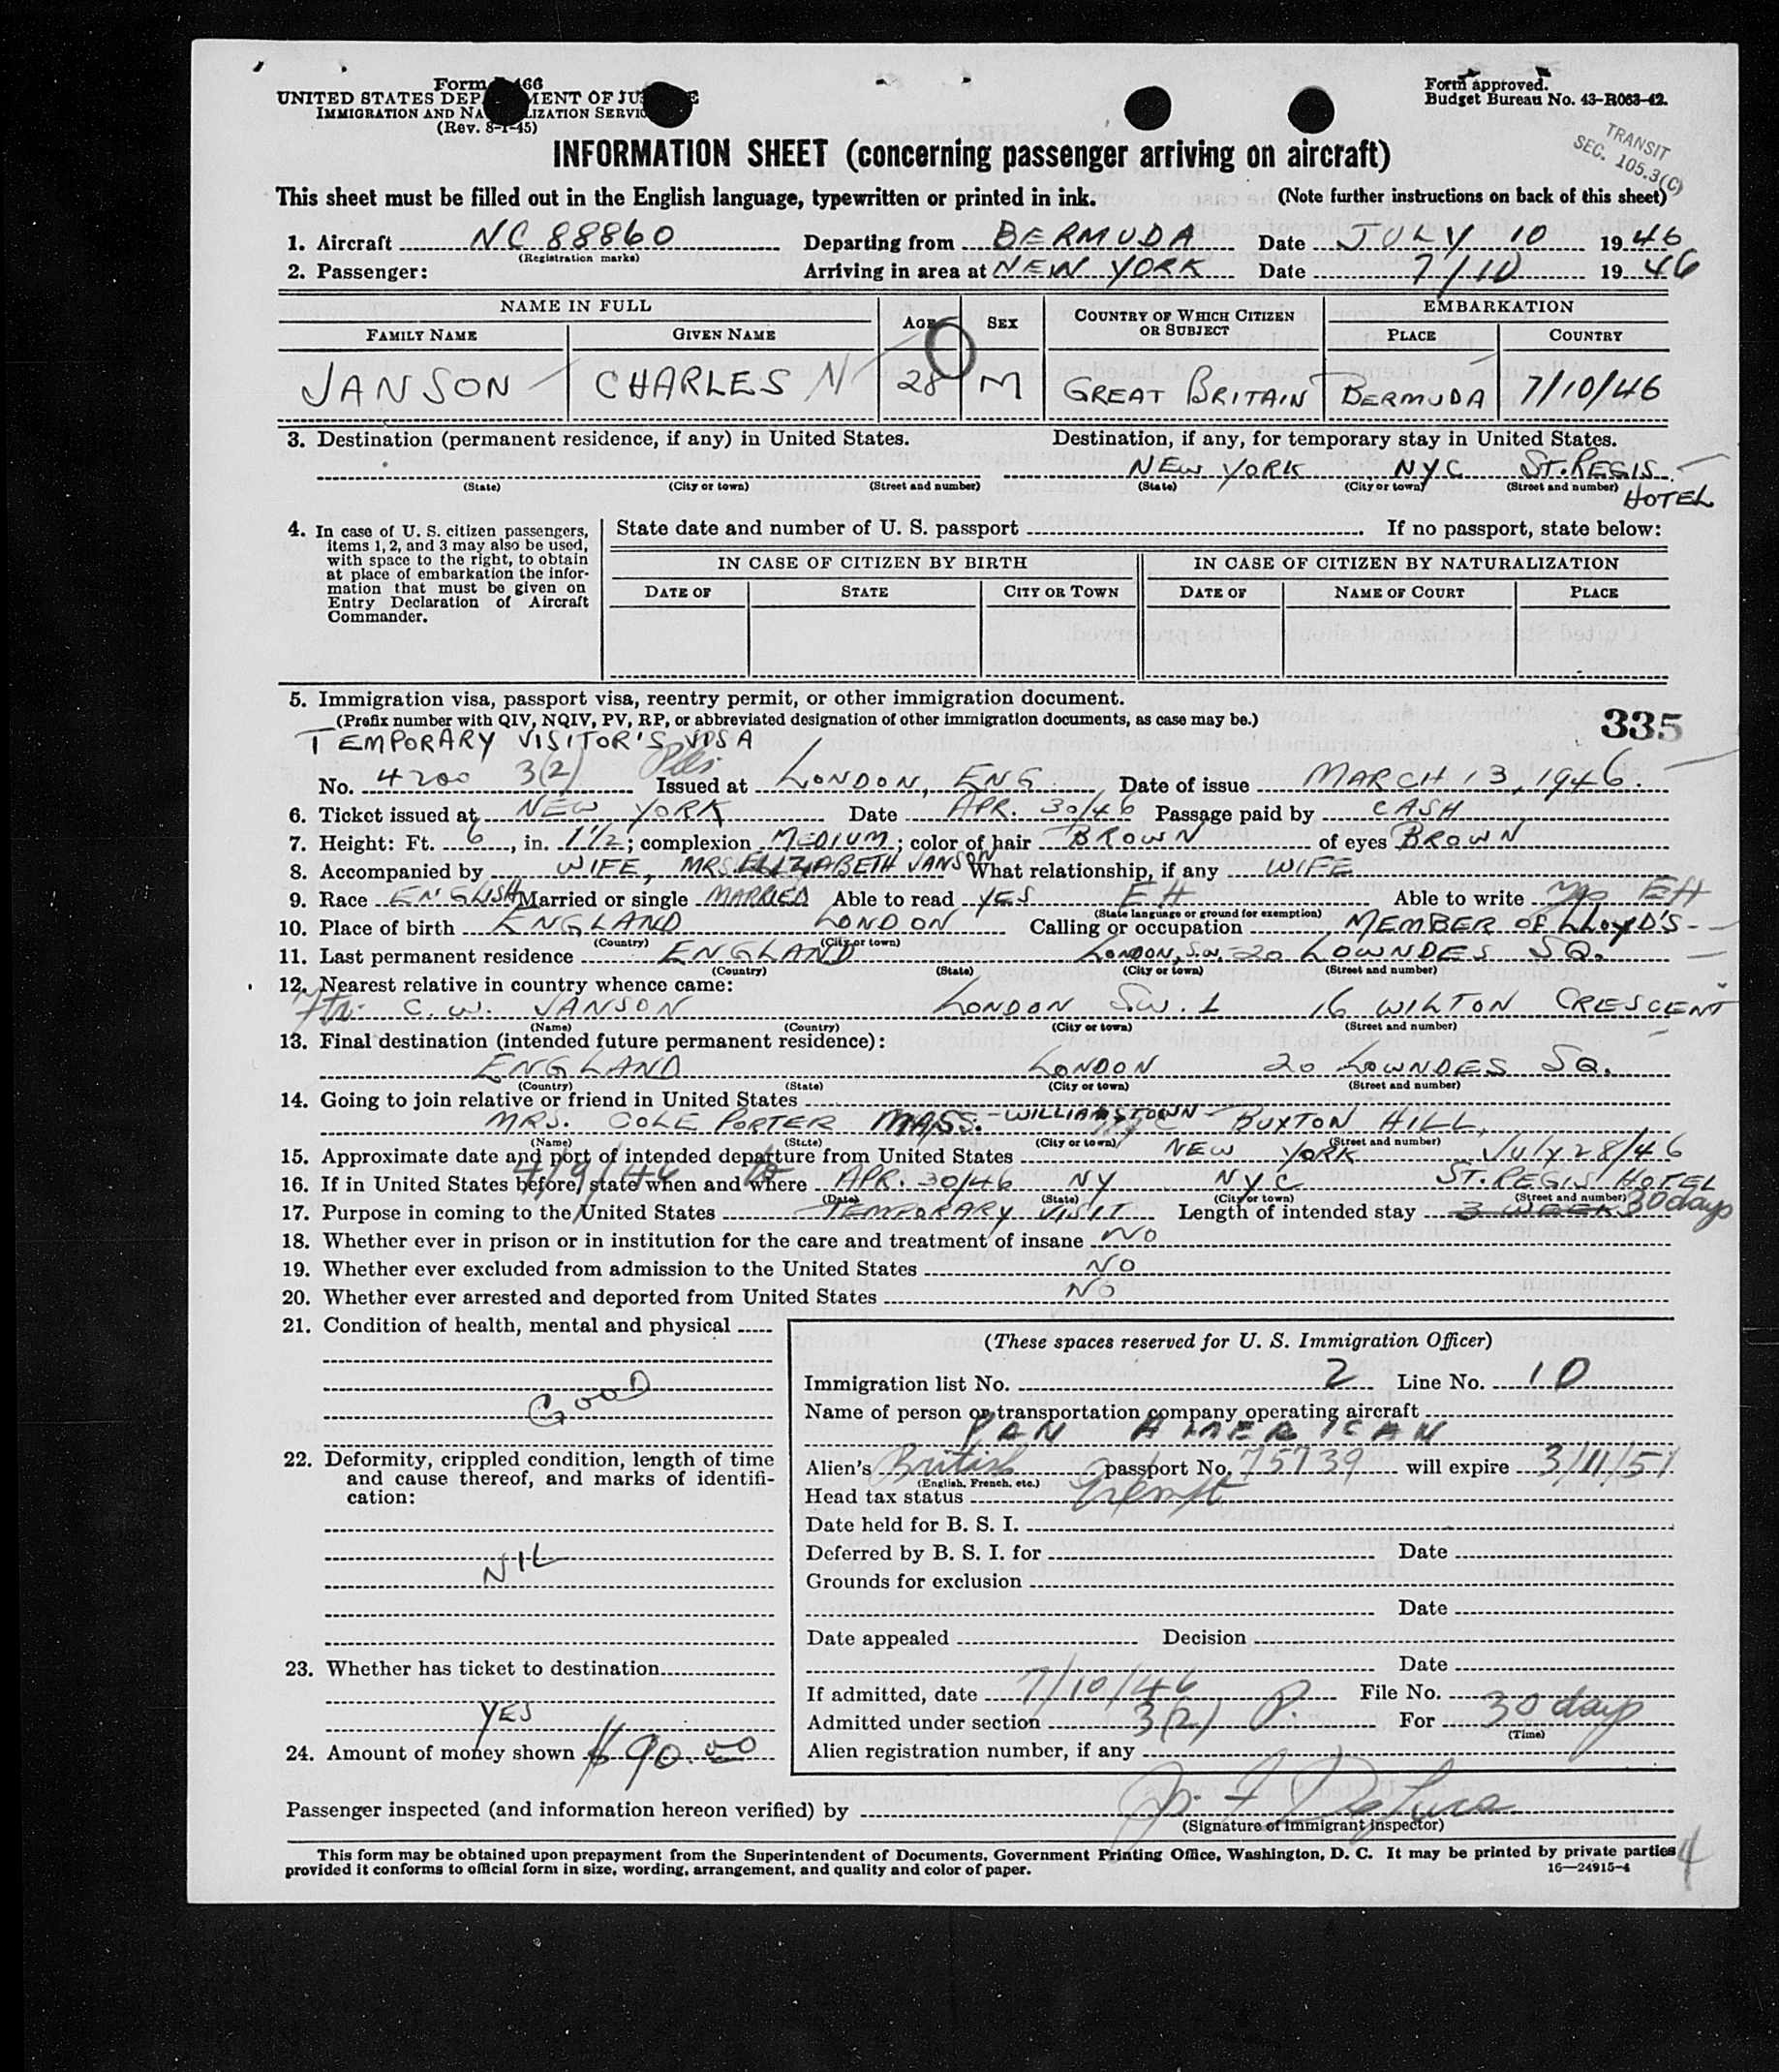 Form 466
UNITED STATES DEPARTMENT OF JUSTICE
IMMIGRATION AND NATURALIZATION SERVICE
(Rev. 8-1-45)
Form approved.
Budget Bureau No. 43-R063-42.
TRANSIT
SEC. 105.3(C)
INFORMATION SHEET (concerning passenger arriving on aircraft)
This sheet must be filled out in the English language, typewritten or printed in ink. (Note further instructions on back of this sheet)
1. Aircraft NC 88860 Departing from BERMUDA Date JULY 10 1946
(Registration marks)
2. Passenger: Arriving in area at NEW YORK Date 7/10 1946
NAME IN FULL AGE SEX COUNTRY OF WHICH CITIZEN OR SUBJECT EMBARKATION
FAMILY NAME GIVEN NAME PLACE COUNTRY
JANSON CHARLES N 28 M GREAT BRITAIN BERMUDA 7/10/46
3. Destination (permanent residence, if any) in United States. Destination, if any, for temporary stay in United States.
NEW YORK NYC ST. REGIS HOTEL
(State) (City or town) (Street and number) (State) (City or town) (Street and number)
4. In case of U. S. citizen passengers, items 1, 2, and 3 may also be used, with space to the right, to obtain at place of embarkation the information that must be given on Entry Declaration of Aircraft Commander.
State date and number of U. S. passport If no passport, state below:
IN CASE OF CITIZEN BY BIRTH IN CASE OF CITIZEN BY NATURALIZATION
DATE OF STATE CITY OR TOWN DATE OF NAME OF COURT PLACE
5. Immigration visa, passport visa, reentry permit, or other immigration document.
(Prefix number with QIV, NQIV, PV, RP, or abbreviated designation of other immigration documents, as case may be.)
335
TEMPORARY VISITOR'S VISA
No. 4200 3(2) Issued at LONDON, ENG. Date of issue MARCH 13, 1946.
6. Ticket issued at NEW YORK Date APR. 30/46 Passage paid by CASH
7. Height: Ft. 6, in. 1½; complexion MEDIUM; color of hair BROWN of eyes BROWN
8. Accompanied by WIFE, MRS. ELIZABETH JANSON What relationship, if any WIFE
9. Race ENGLISH Married or single MARRIED Able to read YES EH Able to write yes EH
(State language or ground for exemption)
10. Place of birth ENGLAND LONDON Calling or occupation MEMBER OF LLOYD'S
(Country) (City or town)
11. Last permanent residence ENGLAND LONDON, S.W. 20 LOWNDES SQ.
(Country) (State) (City or town) (Street and number)
12. Nearest relative in country whence came:
Ftr. C. W. JANSON LONDON S.W. 1 16 WILTON CRESCENT
(Name) (Country) (City or town) (Street and number)
13. Final destination (intended future permanent residence):
ENGLAND LONDON 20 LOWNDES SQ.
(Country) (State) (City or town) (Street and number)
14. Going to join relative or friend in United States
MRS. COLE PORTER MASS. - WILLIAMSTOWN - BUXTON HILL,
(Name) (State) (City or town) (Street and number)
15. Approximate date and port of intended departure from United States NEW YORK July 28/46
4/9/46 to
16. If in United States before, state when and where APR. 30/46 NY NYC ST. REGIS HOTEL
(Date) (State) (City or town) (Street and number)
17. Purpose in coming to the United States TEMPORARY VISIT Length of intended stay 3 WEEKS 30 days
18. Whether ever in prison or in institution for the care and treatment of insane NO
19. Whether ever excluded from admission to the United States NO
20. Whether ever arrested and deported from United States NO
21. Condition of health, mental and physical
GOOD
22. Deformity, crippled condition, length of time and cause thereof, and marks of identification:
NIL
23. Whether has ticket to destination
YES
24. Amount of money shown $90.00
(These spaces reserved for U. S. Immigration Officer)
Immigration list No. 2 Line No. 10
Name of person or transportation company operating aircraft
PAN AMERICAN
Alien's British passport No. 75739 will expire 3/11/51
(English, French, etc.)
Head tax status Exempt
Date held for B. S. I.
Deferred by B. S. I. for Date
Grounds for exclusion
Date
Date appealed Decision
Date
If admitted, date 7/10/46 File No.
Admitted under section 3(2) P. For 30 days
(Time)
Alien registration number, if any
Passenger inspected (and information hereon verified) by
(Signature of immigrant inspector)
This form may be obtained upon prepayment from the Superintendent of Documents, Government Printing Office, Washington, D. C. It may be printed by private parties
provided it conforms to official form in size, wording, arrangement, and quality and color of paper. 16—24915-4
4